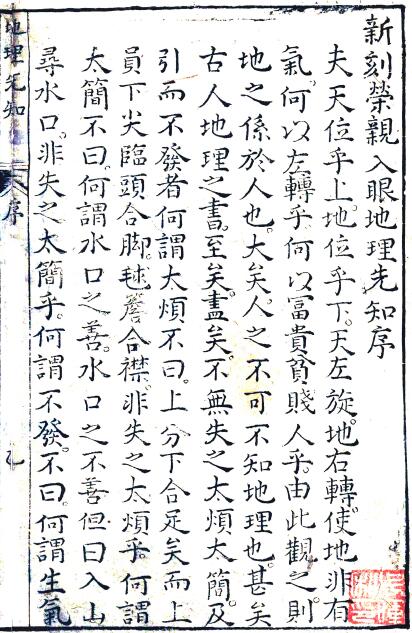 新刻榮親入眼地理先知序
夫天位乎上。地位乎下。天左旋。地右轉。使地非有
氣。何以左轉乎。何以冨貴貧賤人乎。由此觀之。則
地之係於人也。大矣。人之不可不知地理也。甚矣
古人地理之書。至矣。盡矣。不無失之太煩大簡。及
引而不發者。何謂太煩。不曰。上分下合足矣。而上
員下尖。臨頭合脚。毬簷合襟。非失之太煩乎。何謂
太簡。不曰。何謂水口之善。水口之不善。但曰。入山
尋水口。非失之太簡乎。何謂不發。不曰。何謂生氣
地理先知
序